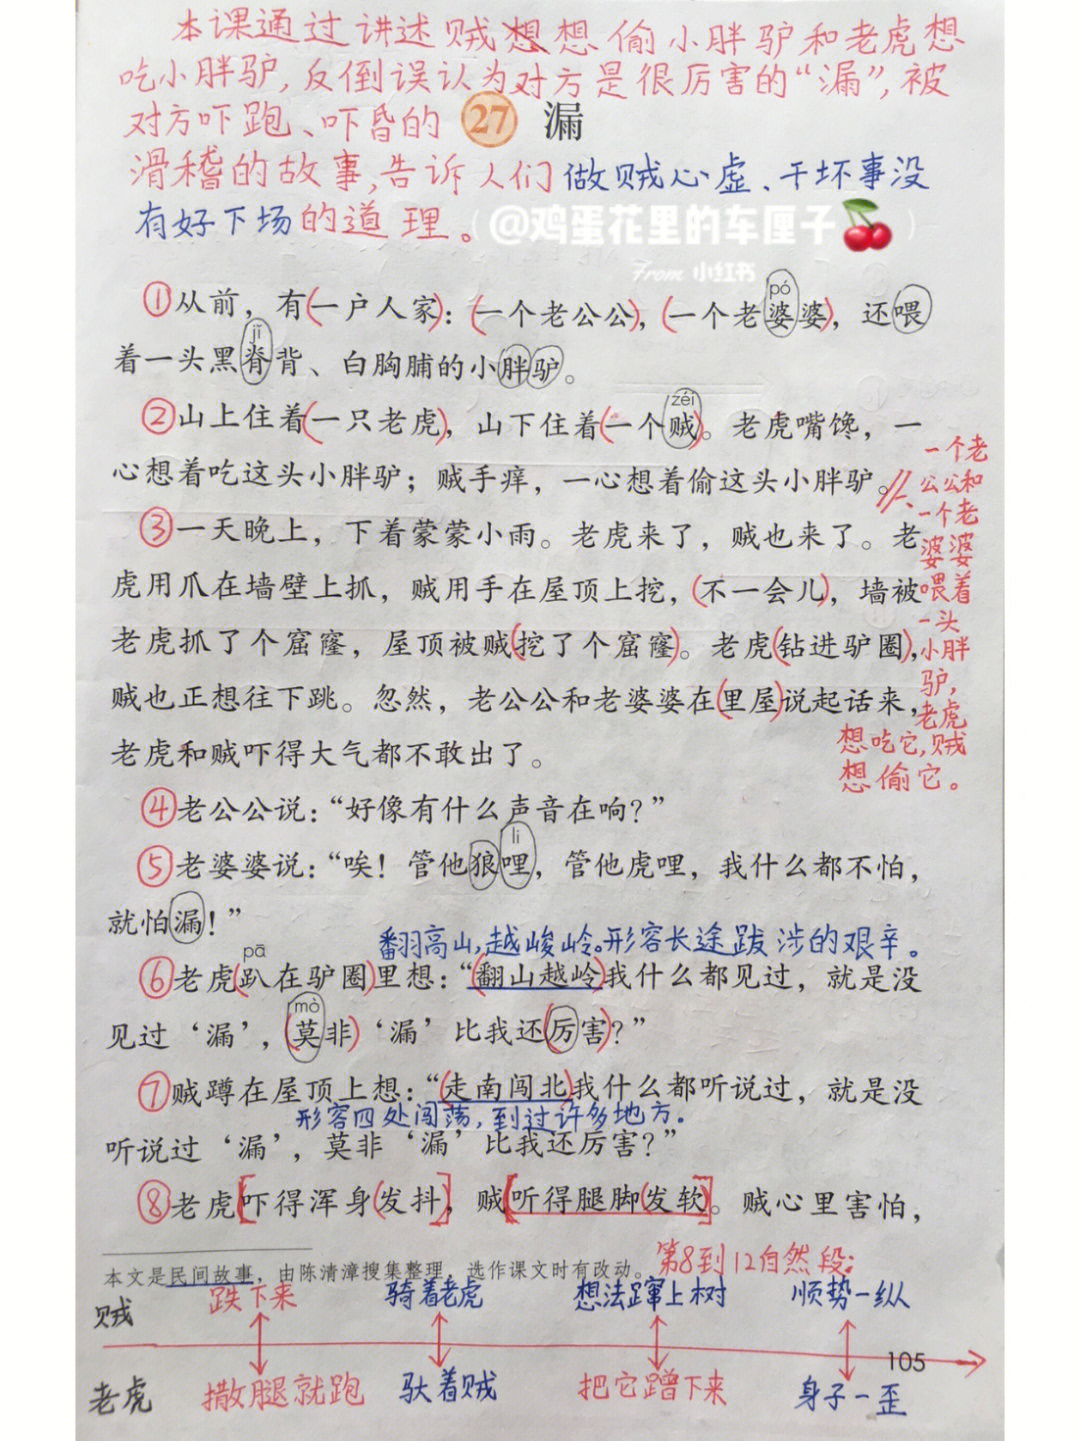 本课通过讲述贼想想偷小胖驴和老虎想
吃小胖驴,反倒误认为对方是很厉害的“漏”,被
对方吓跑、吓昏的 27 漏
滑稽的故事,告诉人们做贼心虚、干坏事没
有好下场的道理。
(@鸡蛋花里的车厘子🍒)
From 小红书
pó
①从前，有(一户人家)：(一个老公公)，(一个老婆婆)，还喂
jǐ
着一头黑脊背、白胸脯的小胖驴。
zéi
②山上住着(一只老虎)，山下住着(一个贼)。老虎嘴馋，一
心想着吃这头小胖驴；贼手痒，一心想着偷这头小胖驴。
③一天晚上，下着蒙蒙小雨。老虎来了，贼也来了。老
虎用爪在墙壁上抓，贼用手在屋顶上挖，(不一会儿)，墙被
老虎抓了个窟窿，屋顶被贼(挖了个窟窿)。老虎(钻进驴圈)，
贼也正想往下跳。忽然，老公公和老婆婆在(里屋)说起话来，
老虎和贼吓得大气都不敢出了。
一个老
公公和
一个老
婆婆
喂着
一头
小胖
驴,
老虎
想吃它,贼
想偷它。
④老公公说：“好像有什么声音在响？”
li
⑤老婆婆说：“唉！管他狼哩，管他虎哩，我什么都不怕，
就怕漏！”
翻羽高山,越峻岭。形容长途跋涉的艰辛。
pā
⑥老虎(趴在驴圈)里想：“(翻山越岭)我什么都见过，就是没
mò
见过‘漏’，(莫非)‘漏’比我还(厉害)？”
⑦贼蹲在屋顶上想：“(走南闯北)我什么都听说过，就是没
形容四处闯荡,到过许多地方.
听说过‘漏’，莫非‘漏’比我还厉害？”
⑧老虎[吓得浑身(发抖)]，贼[听得腿脚(发软)]。贼心里害怕，
本文是民间故事，由陈清漳搜集整理，选作课文时有改动。
第8到12自然段:
贼 跌下来 骑着老虎 想法蹿上树 顺势一纵
105
老虎 撒腿就跑 驮着贼 把它蹭下来 身子一歪